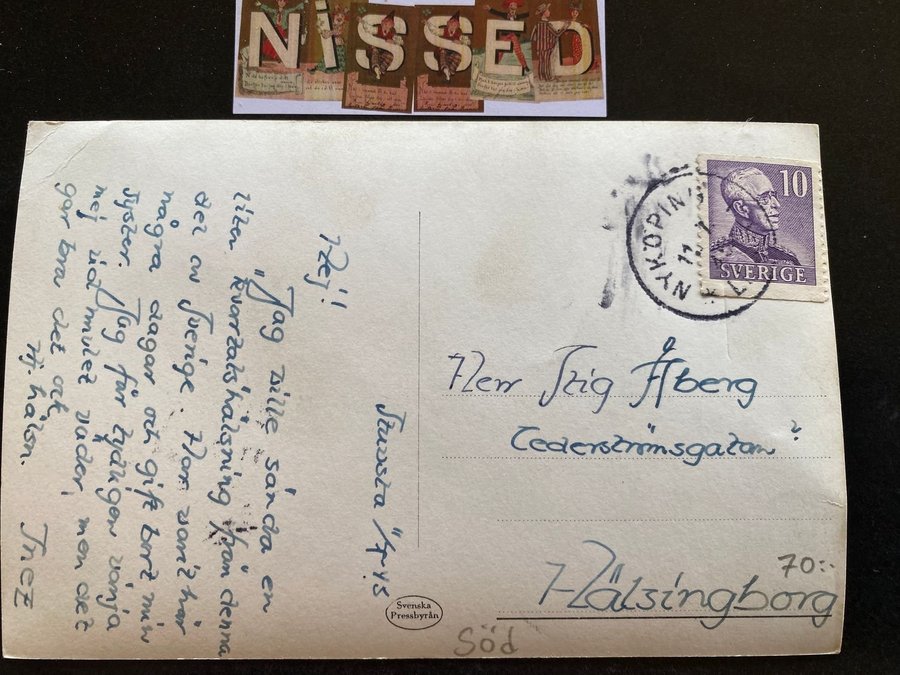 NISSED
NYKÖPING
11
10
SVERIGE
Herr Stig Åberg
Cederströmsgatan ?
Hälsingborg
70:-
Svenska
Pressbyrån
Söd
45
Hej!
Jag ville sända en
liten kvartalshälsning från denna
del av Sverige. Har varit här
några dagar och gift bort min
syster. Jag får tydligen vänja
mej vid mulet väder men det
går bra det och.
Hj. hälsn.
Inez